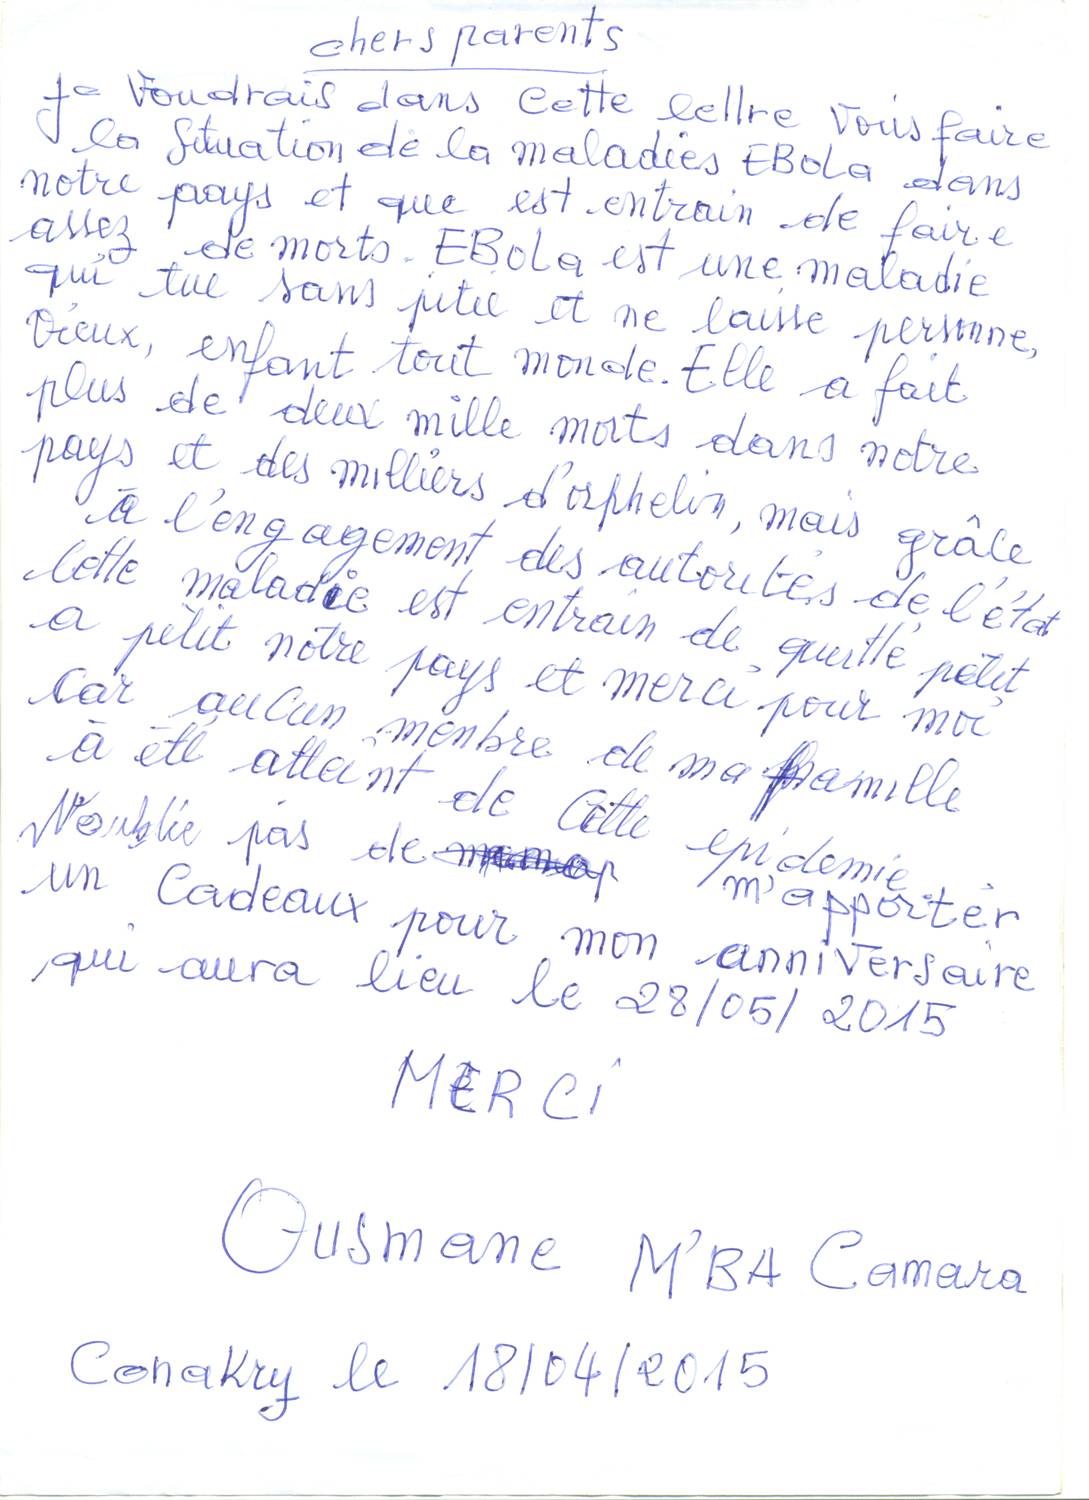 chers parents
Je voudrais dans cette lettre vous faire
la situation de la maladies EBola dans
notre pays et que est entrain de faire
assez de morts. EBola est une maladie
qui tue sans pitié et ne laisse personne,
vieux, enfant tout monde. Elle a fait
plus de deux mille morts dans notre
pays et des milliers d'orphelin, mais grâce
à l'engagement des autorités de l'état
cette maladie est entrain de quitté petit
a petit notre pays et merci pour moi
car aucun menbre de ma famille
à été atteint de cette epidemie.
N'oublie pas de m'apporter
un cadeaux pour mon anniversaire
qui aura lieu le 28/05/2015
MERCI
Ousmane M'BA Camara
Conakry le 18/04/2015